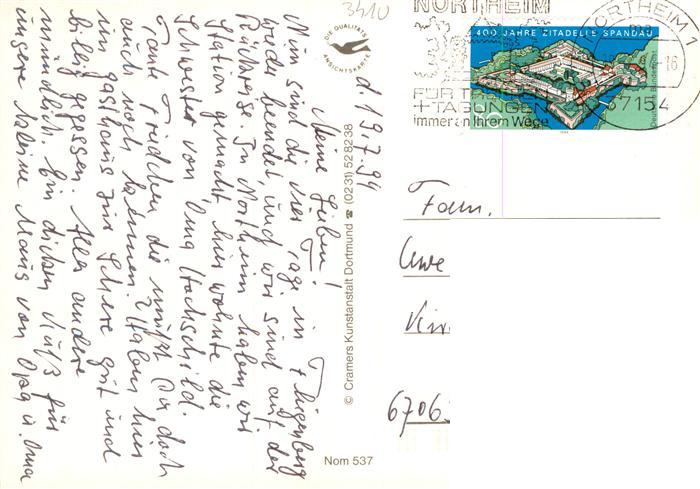 d 19.7.94
Meine Lieben!
Nun sind die vier Tage in Thigenberg
wieder beendet, und wir sind auf der
Rückreise. In Northeim haben wir
Station gemacht, hier wohnte die
Schwester von Oma Hochschild.
Tante Friedchen, die müßt Ihr doch
auch noch kennen. Haben hier
im Gasthaus zur Schere gut und
billig gegessen. Alles andere
mündlich. Ein dicken Kuß für
unsere kleine Maus von Opa u. Oma
3410
DIE QUALITÄTS
ANSICHTSKARTE
© Cramers Kunstanstalt Dortmund ☎ (0231) 52 82 38
Nom 537
NORTHEIM
FÜR
+TAGUNGEN
immer an Ihrem Wege
400 JAHRE ZITADELLE SPANDAU
Deutsche Bundespost
NORTHEIM 1
16
37154
Fam.
Uwe
6706